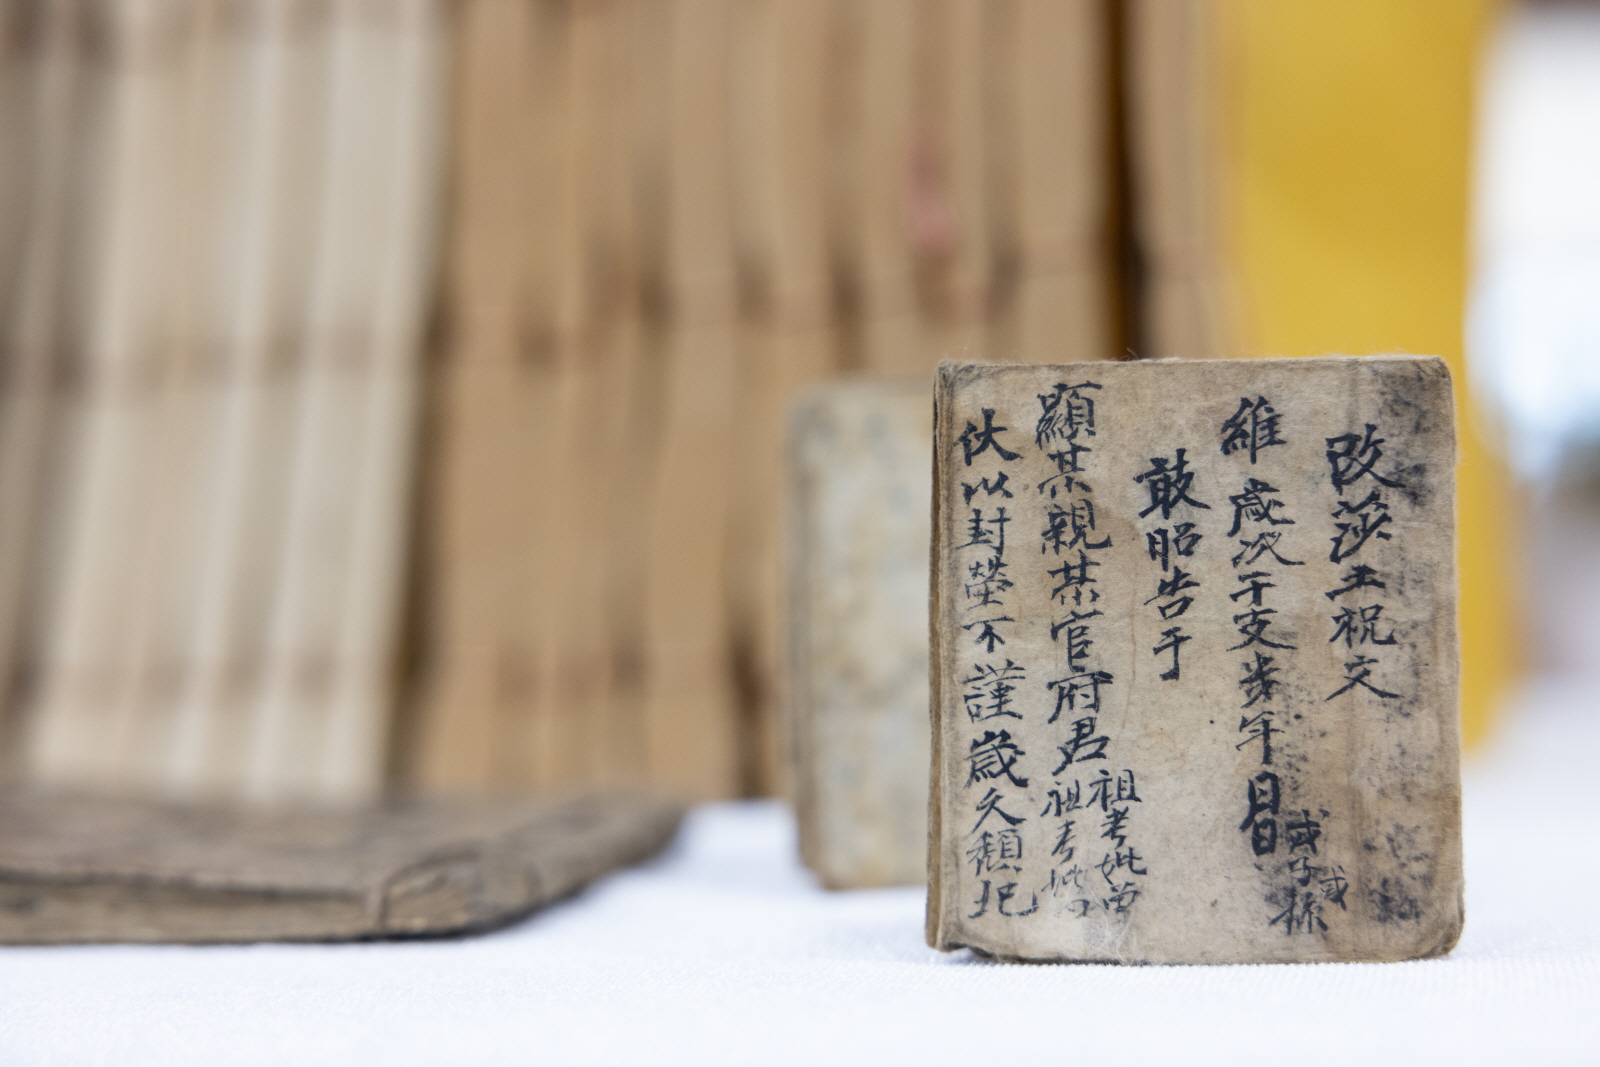 改莎土祝文
維
歲次干支步年月日 或子或孫
敢昭告于
顯某親某官府君 祖考妣曾
祖考妣
伏以封塋不謹歲久頹圯